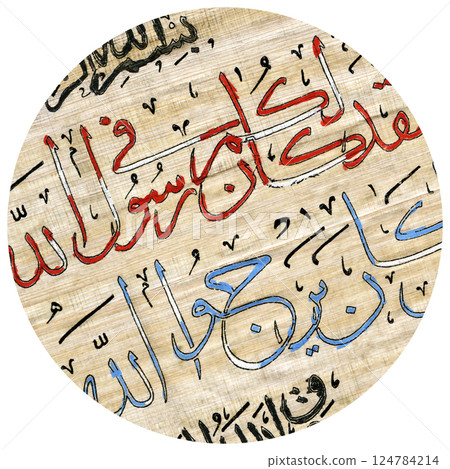 بسم الله
لقد كان لكم في رسول الله
كان يرجوا الله
124784214